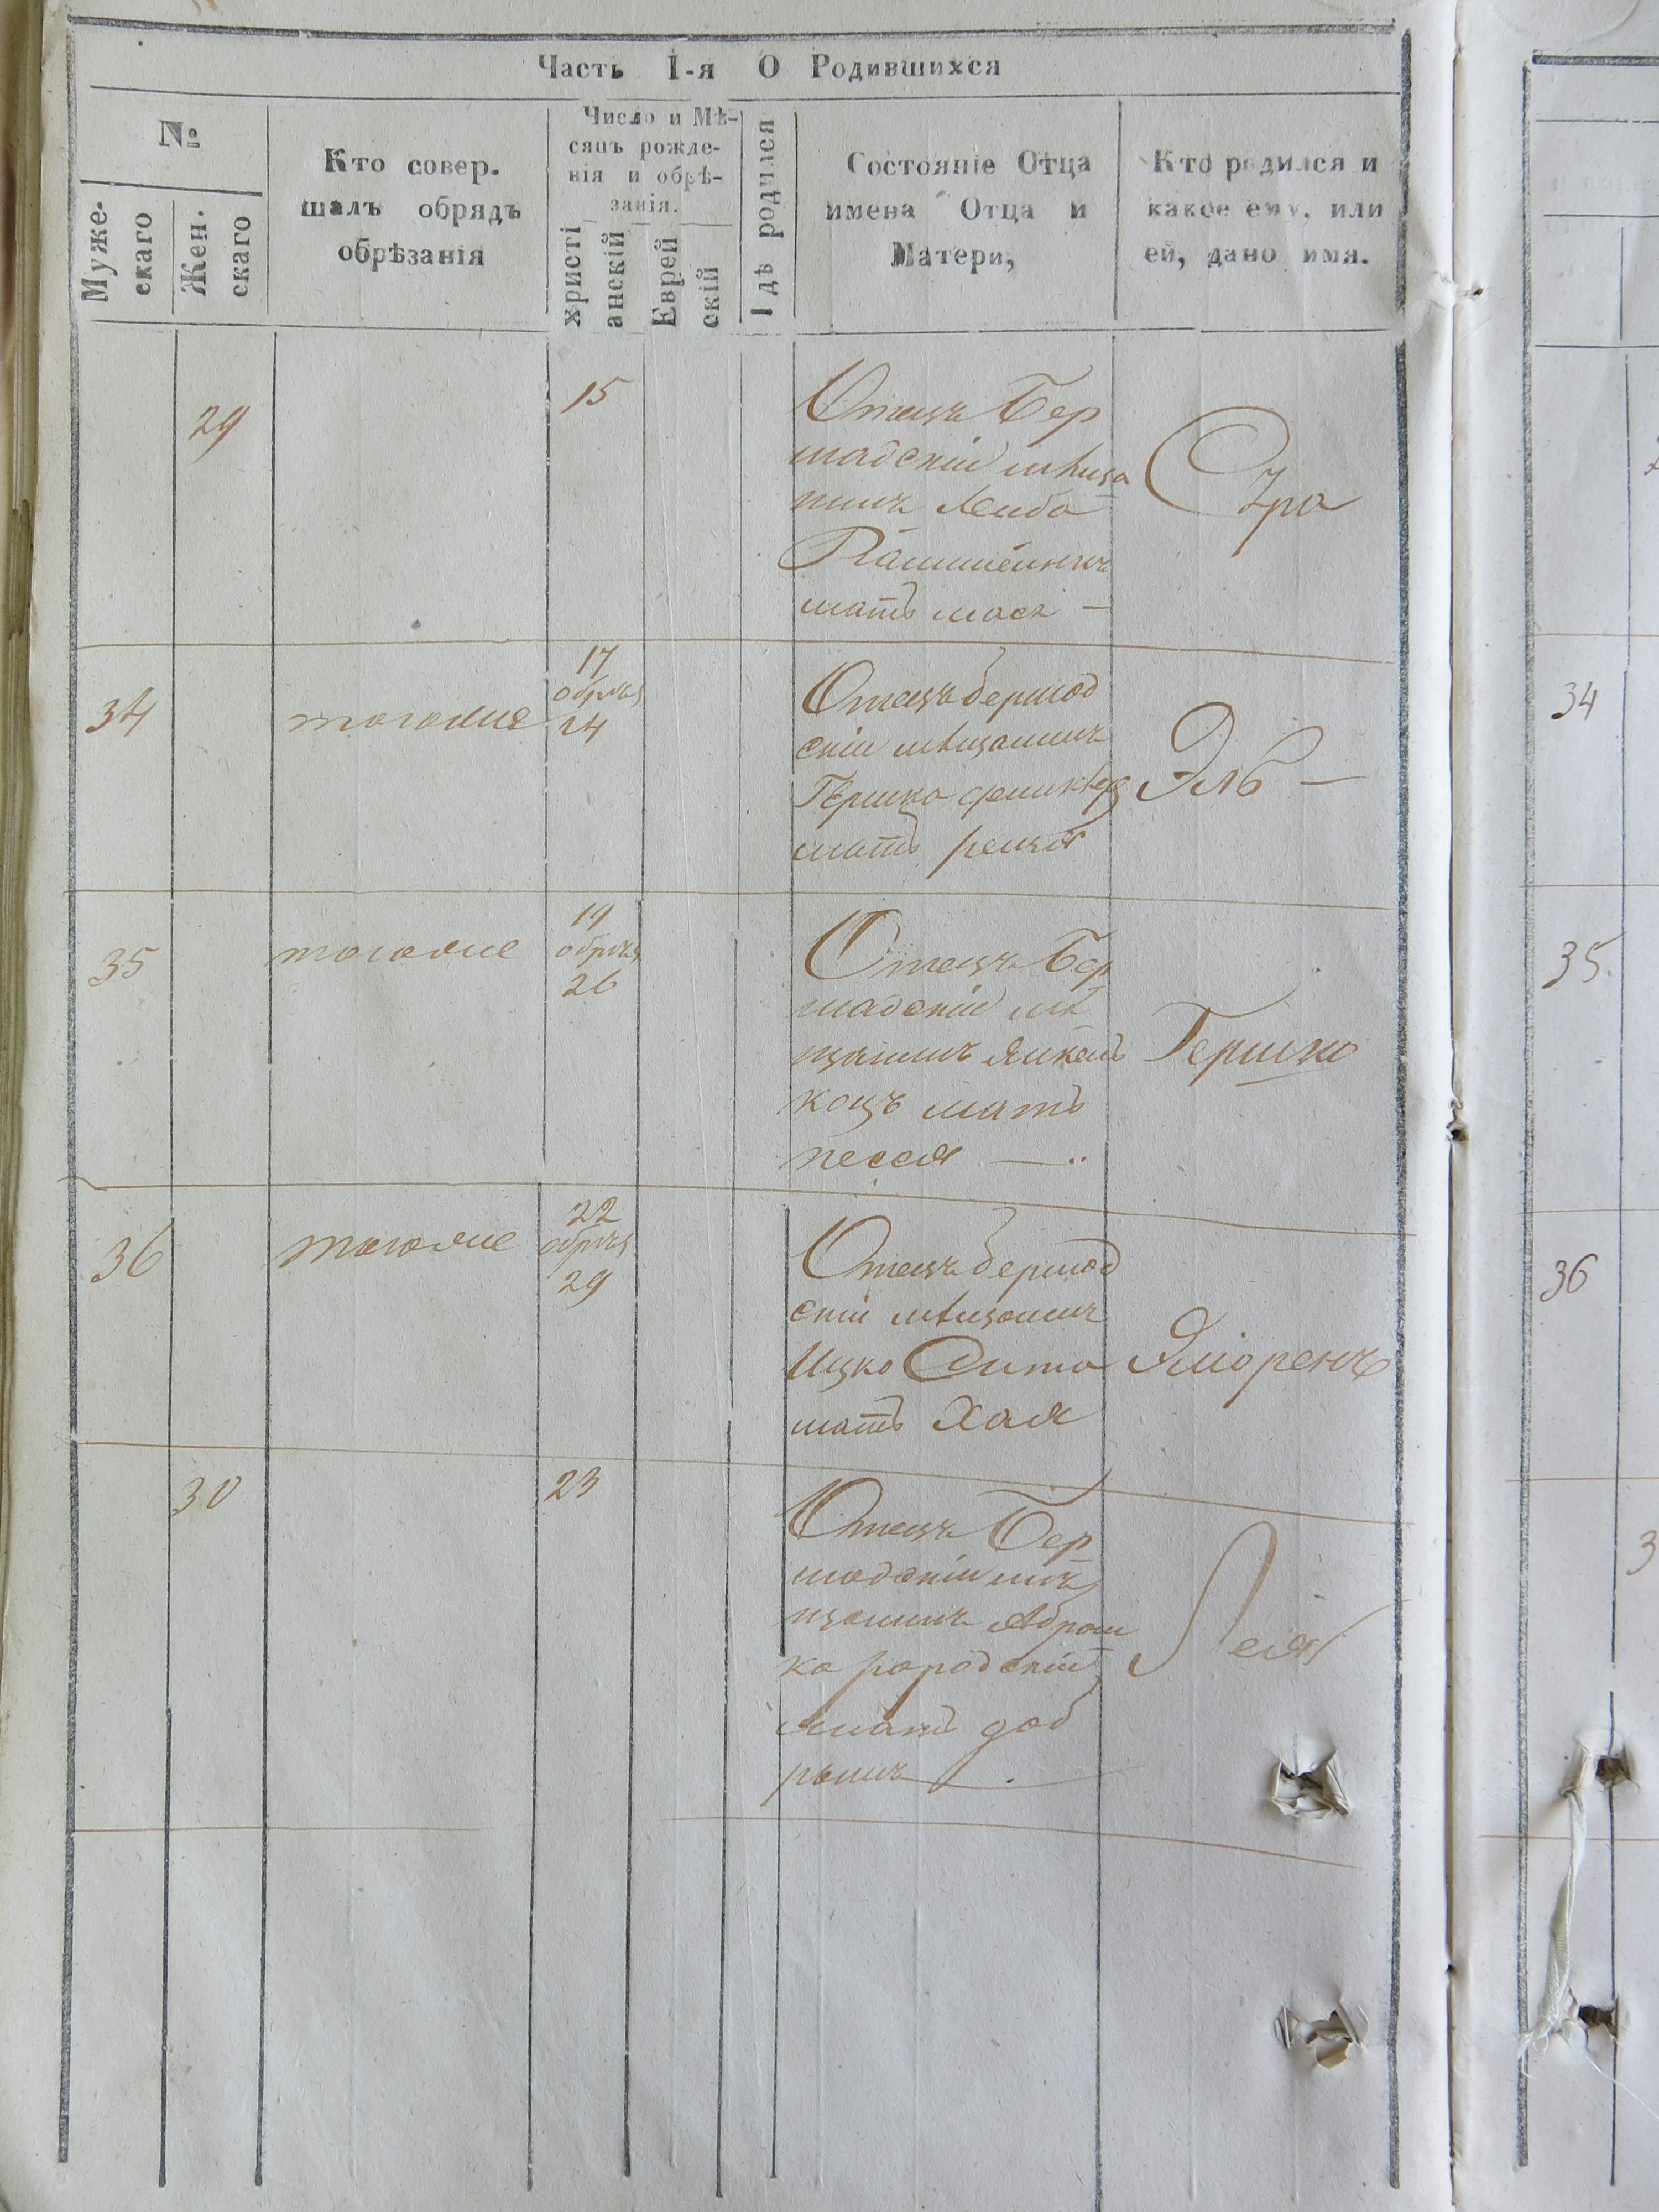 Часть I-я О Родившихся
№
Муже-
скаго
Жен.
скаго
Кто совер.
шалъ обрядъ
обрѣзанія
Число и Мѣ-
сяцъ рожде-
нія и обрѣ-
занія.
христі
анскій
Еврей
скій
Гдѣ родился
Состояніе Отца
имена Отца и
Матери,
Кто родился и
какое ему, или
ей, дано имя.
29
15
Отецъ Бер
шадскій мѣща
нинъ Лейба
мать
34
тотоже
17
24
Отецъ бершад
скій мѣщанинъ
Гершко
мать
Эль —
35
тотоже
19
26
Отецъ Бер
шадскій мѣ
щанинъ Янкель
коцъ мать
песся
Гершко
36
тотоже
22
29
Отецъ бершад
скій мѣщанинъ
Ицко Сита
мать Хая
30
23
Отецъ Бер
шадскій мѣ
щанинъ Абрам
ко
мать доб
рышъ
Лея
34
35.
36
3